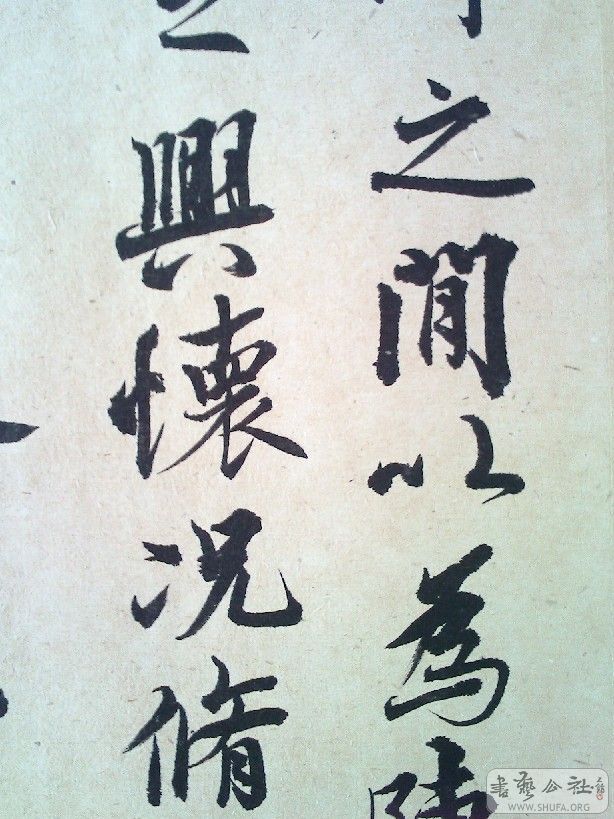 之閒以為陳
之興懷況脩
書藝公社
WWW.SHUFA.ORG